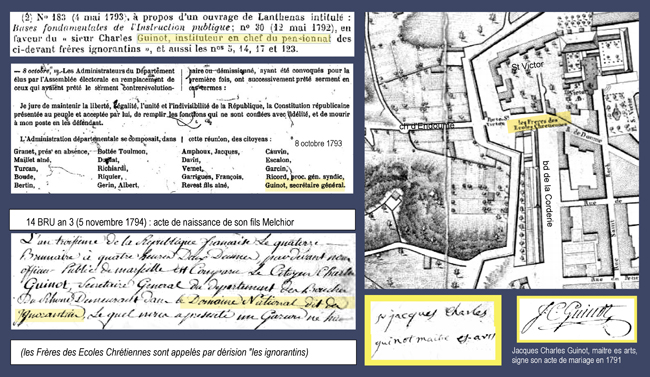 (2) No 183 (4 mai 1793), à propos d'un ouvrage de Lanthenas intitulé :
Bases fondamentales de l'Instruction publique; no 30 (12 mai 1792), en
faveur du « sieur Charles Guinot, instituteur en chef du pensionnat des
ci-devant frères ignorantins », et aussi les nos 5, 14, 17 et 123.
— 8 octobre, Les Administrateurs du Département
élus par l'Assemblée électorale en remplacement de
ceux qui avaient prêté le serment contrerévolution-
paire ou démissionné, ayant été convoqués pour la
première fois, ont successivement prêté serment en
ces termes :
Je jure de maintenir la liberté, l'égalité, l'unité et l'indivisibilité de la République, la Constitution républicaine
présentée au peuple et acceptée par lui, de remplir les fonctions qui me sont confiées avec fidélité, et de mourir
à mon poste en les défendant.
8 octobre 1793
L'Administration départementale se composait, dans cette réunion, des citoyens :
Granet, prés' en absence,
Maillet aîné,
Turcan,
Bosde,
Bertin,
Bottée Toulmon,
Duffat,
Richiardi,
Riquier,
Gerin, Albert,
Amphoux, Jacques,
Davin,
Vernet,
Garrigues, François,
Revest fils aîné,
Cauvin,
Escalon,
Garcin,
Ricord, proc. gén. syndic,
Guinot, secrétaire général.
14 BRU an 3 (5 novembre 1794) : acte de naissance de son fils Melchior
L'an troisième de la République française Le quatorze
Brumaire à quatre heures
officier Public de marseille est Comparu Le Citoyen Charles
Guinot, Secrétaire Général du département des Bouches
du Rhône Demeurant dans le Domaine National dit des
ignorantins, Lequel nous a présenté un Garçon né hier
(les Frères des Ecoles Chrétiennes sont appelés par dérision "les ignorantins)
St Victor
les Freres des
Ecoles Chretiennes
ch d'Endoume
bd de la Corderie
Rue
jacques Charles
guinot maitre es-arts
J.C. Guinot
Jacques Charles Guinot, maître es arts,
signe son acte de mariage en 1791